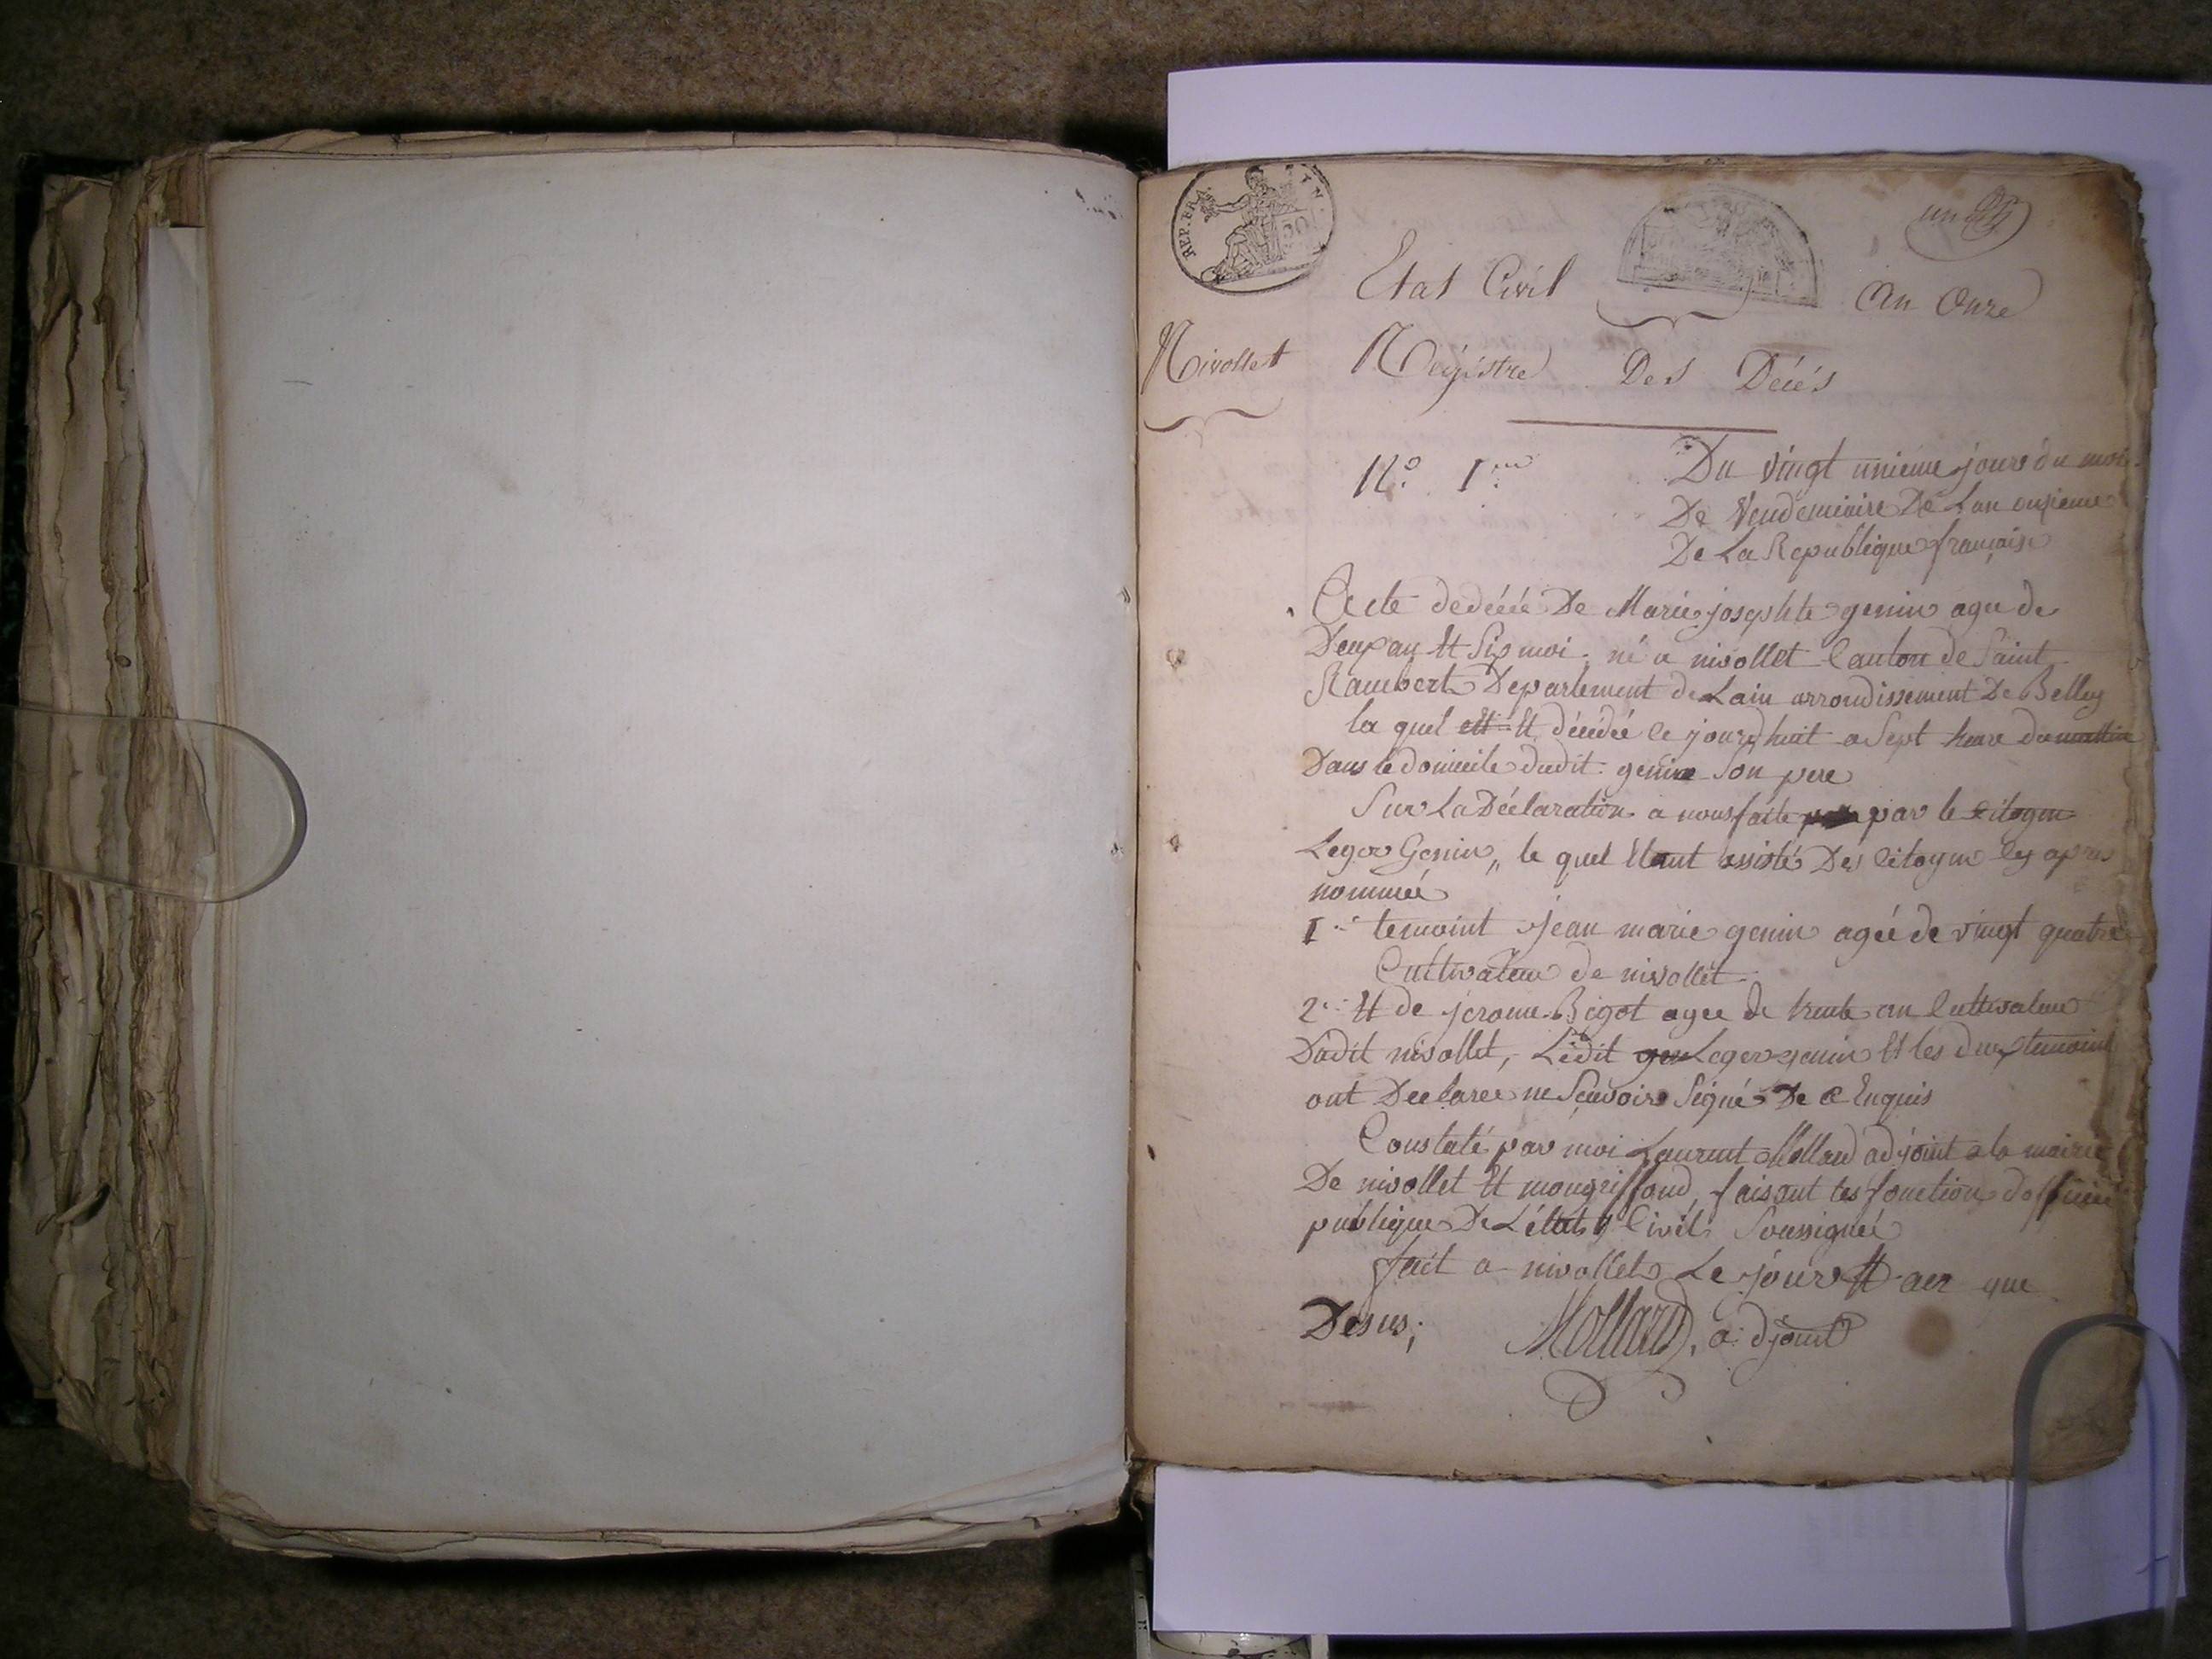 REP. FRA.
un
Etat Civil An Onze
Nivollet Régistre Des Décés
N.º 1.er Du vingt unieme jours du mois
De Vendemiaire De Lan onzieme
De La Republique française
Acte dedécée De Marie josephte genin agee de
Deux an Et Six moi né a nivollet Canton de Saint
Rambert Departement de Lain arrondissement De Belley
la quel est Et décédée le jourdhuit a Sept heure du mattin
Dans le domicile dudit genin Son pere
Sur La Déclaration a nous faite par le citoyen
Leger Genin, le quel Etant assisté Des Citoyen les apres
nommée
1.er temoint jean marie genin agée de vingt quatre
Cultivateur de nivollet
2.e Et de jerome Bigot agee de trente an Cultivateur
Dudit nivollet, Ledit gen Leger genin Et les deux temoint
ont Declaree ne Scavoire Signé De ce Enquis
Constaté par moi Laurent Mollard adjoint a la mairie
De nivollet Et mongriffond, faisant les fonction dofficier
publique De L'état Civil Soussignée
fait a nivollet Le jour Et an que
Desus; Mollard, adjoint